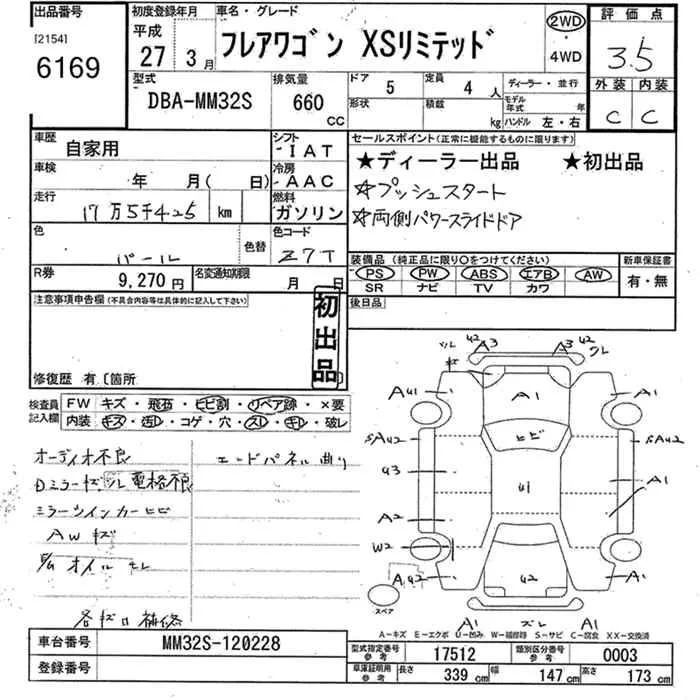 出品番号 初度登録年月 車名・グレード 評価点
[2154] 平成 2WD
6169 27 3月 フレアワゴン XSリミテッド ・ 3.5
4WD
型式 排気量 ドア 5 定員 4人 ディーラー・並行 外装 内装
DBA-MM32S 660 CC 形状 積載 kg モデル年式 年 C C
ハンドル 左・右
車歴 自家用 シフト IAT セールスポイント(正常に機能するものに限ります)
車検 年 月( 日) 冷房 AAC ★ディーラー出品 ★初出品
走行 17万5千425 km 燃料 ガソリン ☆プッシュスタート
☆両側パワースライドドア
色 パール 色替 色コード Z7T
装備品 (純正品に限り○をつけてください) 新車保証書
R券 9,270円 名変通知期限 月 日 PS PW ABS エアB AW 有・無
SR ナビ TV カワ
注意事項申告欄(不具合内容等は具体的に記入して下さい) 後日品
初出品
修復歴 有〔箇所 〕
検査員記入欄 FW キズ・飛石・ヒビ割・リペア跡・×要
内装 キズ・汚レ・コゲ・穴・スレ・キレ・破レ
オーディオ不良 エンドパネル曲り
Dミラーキズ,ズレ電格不良
ミラーウインカーヒビ
AWキズ
オイルモレ
各キズ口補修
A3 U2 A3 U2 ズレ
キズ
A41 A1 A1
ヒビ
SA42 SA42
U3 U1 A1
A2
W2
A42 U2 A1
スペア
A1 ズレ A1
A-キズ E-エクボ U-凹み W-補修跡 S-サビ C-腐食 XX-交換済
車台番号 MM32S-120228 型式指定番号 参考 17512 類別区分番号 参考 0003
登録番号 車庫証明用 参考 長さ 339cm 幅 147cm 高さ 173cm